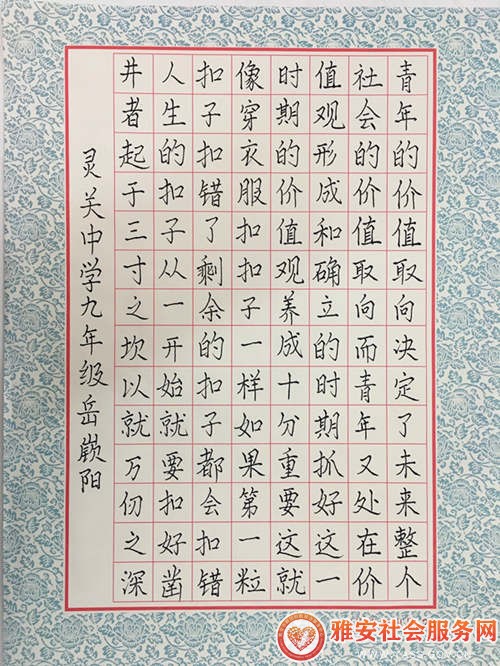 青年的价值取向决定了未来整个
社会的价值取向而青年又处在价
值观形成和确立的时期抓好这一
时期的价值观养成十分重要这就
像穿衣服扣扣子一样如果第一粒
扣子扣错了剩余的扣子都会扣错
人生的扣子从一开始就要扣好凿
井者起于三寸之坎以就万仞之深
灵关中学九年级岳阳
雅安社会服务网